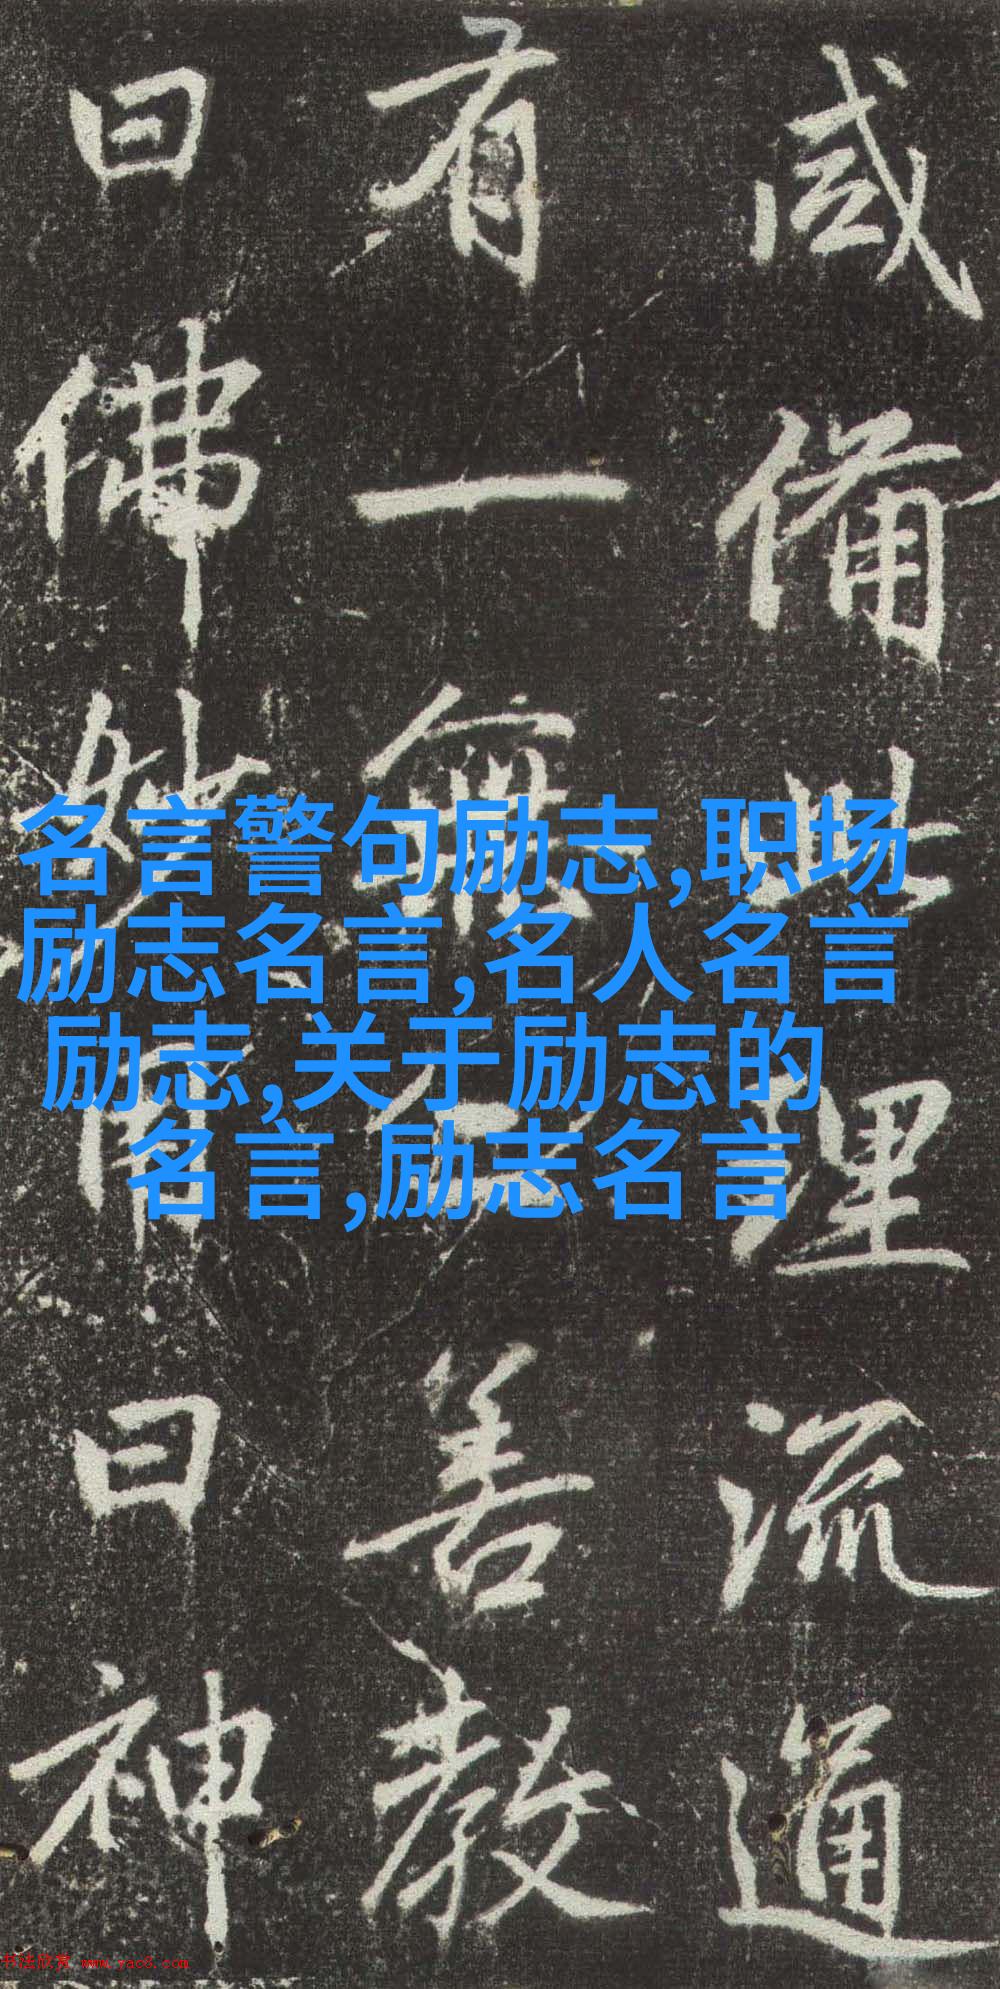 咸備此理流通
有一無善教
曰佛妙曰神
名言警句励志,职场
励志名言,名人名言
励志,关于励志的
名言,励志名言
书法欣赏 www.yac8.com